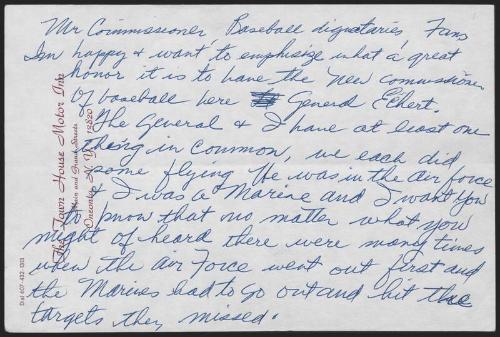 Mr Commissioner, Baseball dignataries, Fans
I'm happy & want to emphisize what a great
honor it is to have the New commissioner
Of baseball here General Eckert.
The General & I have at least one
thing in common, we each did
some flying He was in the air force
& I was a Marine and I want you
to know that no matter what you
might of heard there were many times
when the Air Force went out first and
the Marines had to go out and hit the
targets they missed.
The Town House Motor Inn
Main and Grand Streets
Oneonta, N. Y. 13820
Dial 607-432-1313